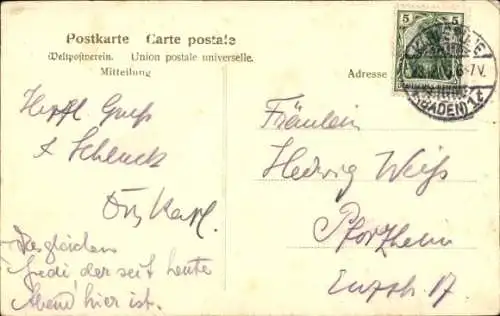 Postkarte Carte postale
Weltpostverein. Union postale universelle.
Mitteilung
Adresse
5 5
KARLSRUHE
6-7V.
(BADEN) 1.
Herzl. Gruß
Karl.
Desgleichen
der seit heute
Abend hier ist.
Fräulein
Hedwig Weiß
Pforzheim
Enzstr. 17